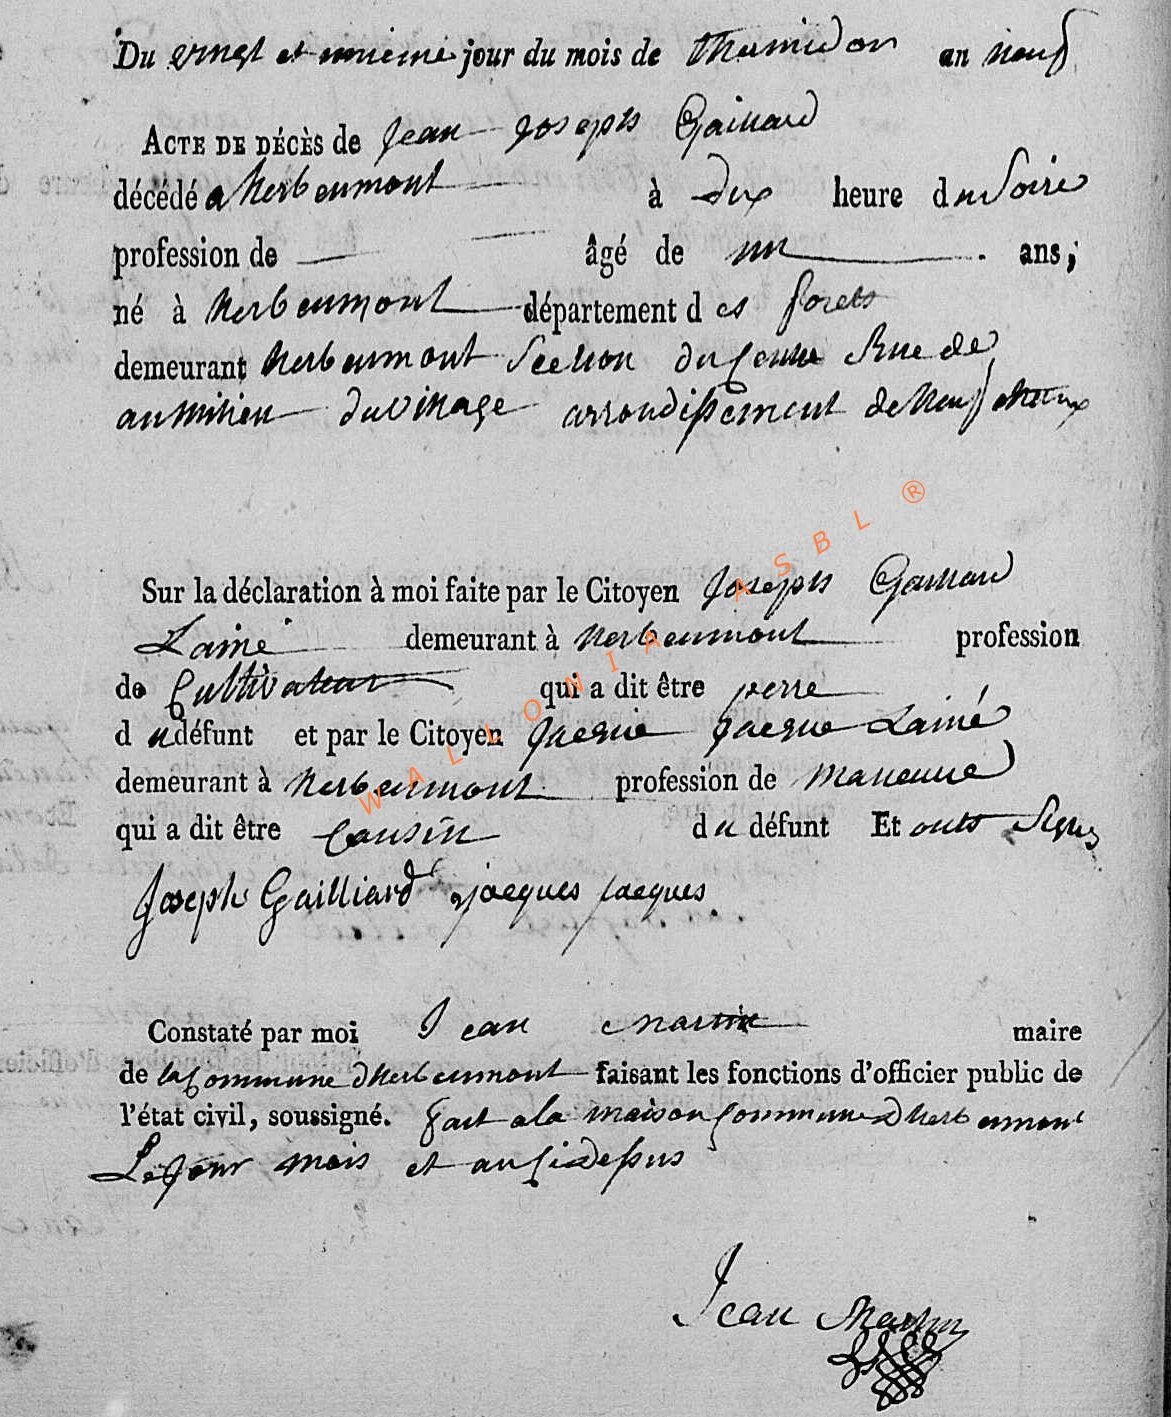 Du vingt et unieme jour du mois de thermidor an neuf
ACTE DE DÉCÈS de Jean Joseph Gaillard
décédé a herbeumont à dix heure du Soire
profession de âgé de un ans,
né à herbeumont département des forets
demeurant herbeumont Section du Centre Rue de
au milieu du village arrondissement de Neufchateaux
WALLONIA ASBL ®
Sur la déclaration à moi faite par le Citoyen Joseph Gaillard
Lainé demeurant à herbeumont profession
de Cultivateur qui a dit être perre
du défunt et par le Citoyen Jacque Jacque Lainé
demeurant à herbeumont profession de
qui a dit être Cousin du défunt Et onts Signes
Joseph Gailliard jacques jacques
Constaté par moi Jean Martin maire
de la Commune dherbeumont faisant les fonctions d'officier public de
l'état civil, soussigné. fait a la maison Commune dherbeumont
Le Jour mois et an Cidessus
Jean Martin